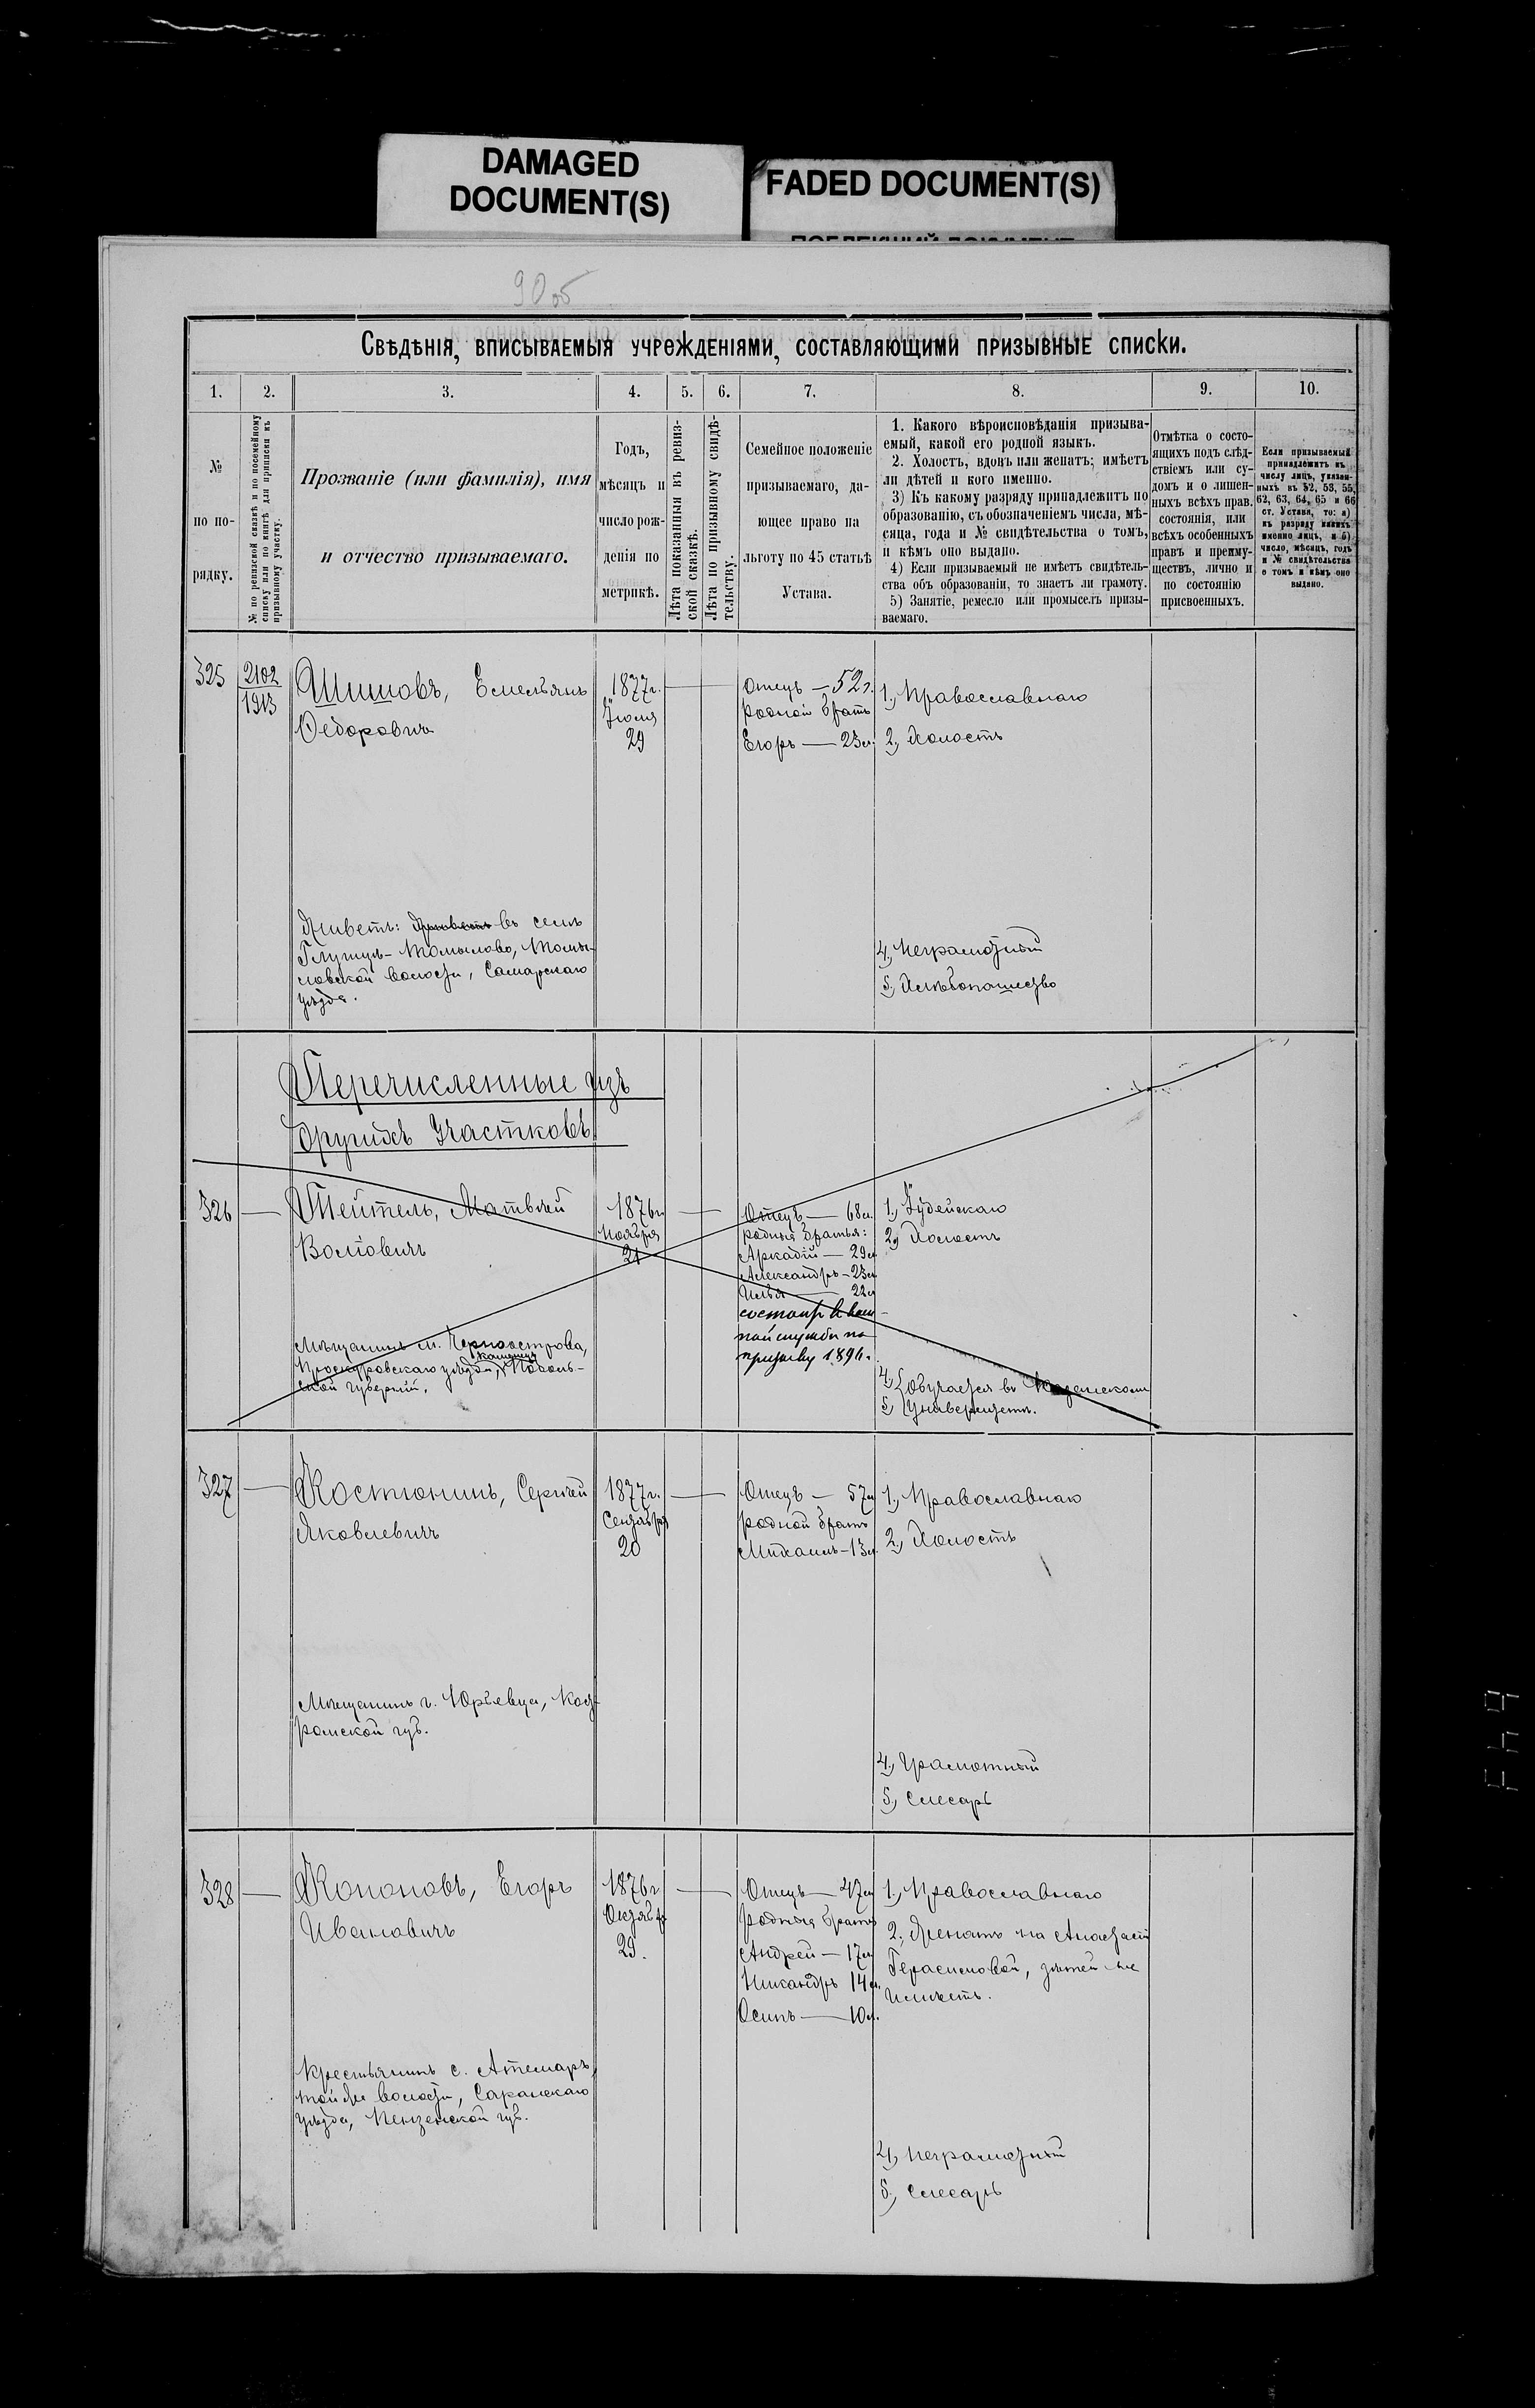 DAMAGED
DOCUMENT(S)
FADED DOCUMENT(S)
90об
Свѣдѣнія, вписываемыя учрежденіями, составляющими призывные списки.
1. 2. 3. 4. 5. 6. 7. 8. 9. 10.
№
по по-
рядку.
№ по ревизской сказкѣ и по посемейному
списку или по книгѣ для приписки къ
призывному участку.
Прозваніе (или фамилія), имя
и отчество призываемаго.
Годъ,
мѣсяцъ и
число рож-
денія по
метрикѣ.
Лѣта показанныя въ ревиз-
ской сказкѣ.
Лѣта по призывному свидѣ-
тельству.
Семейное положеніе
призываемаго, да-
ющее право на
льготу по 45 статьѣ
Устава.
1. Какого вѣроисповѣданія призыва-
емый, какой его родной языкъ.
2. Холостъ, вдовъ или женатъ; имѣетъ
ли дѣтей и кого именно.
3) Къ какому разряду принадлежитъ по
образованію, съ обозначеніемъ числа, мѣ-
сяца, года и № свидѣтельства о томъ,
и кѣмъ оно выдано.
4) Если призываемый не имѣетъ свидѣтель-
ства объ образованіи, то знаетъ ли грамоту.
5) Занятіе, ремесло или промыселъ призы-
ваемаго.
Отмѣтка о состо-
ящихъ подъ слѣд-
ствіемъ или су-
домъ и о лишен-
ныхъ всѣхъ прав.
состоянія, или
всѣхъ особенныхъ
правъ и преиму-
ществъ, лично и
по состоянію
присвоенныхъ.
Если призываемый
принадлежитъ къ
числу лицъ, указан-
ныхъ въ 52, 53, 55,
62, 63, 64, 65 и 66
ст. Устава, то: а)
къ разряду какихъ
именно лицъ, и б)
число, мѣсяцъ, годъ
и № свидѣтельства
о томъ и кѣмъ оно
выдано.
325
2102
1913
Шишовъ, Емельянъ
Ѳедоровичъ
1877г.
Іюля
29
Отецъ — 52 г.
родной братъ
Егоръ — 23 л.
1, Православнаго
2, Холостъ
Живетъ: въ селѣ
Томылово, Томы-
ловской волости, Самарскаго
уѣзда.
4, Неграмотный
5, Хлѣбопашество
Перечисленные изъ
другихъ участковъ
326
Тейтель, Матвѣй
Волковичъ
1876г.
Ноября
21
Отецъ — 68 л.
родные братья:
Аркадій — 29 л
Александръ — 23 л
Илья — 22 л
состоитъ в воен-
ной службѣ по
призыву 1896г.
1, Іудейскаго
2, Холостъ
Мѣщанинъ м. Черноострова,
Проскуровскаго уѣзда, Подоль-
ской губерніи.
4, Обучается въ Казанскомъ
5, Университетѣ.
327
Костюнинъ, Сергѣй
Яковлевичъ
1877г.
Сентября
20
Отецъ — 57 л
родной братъ
Михаилъ — 13 л.
1, Православнаго
2, Холостъ
Мѣщанинъ г. Юрьевца, Кост-
ромской губ.
4, Грамотный
5, Слесарь
328
Кононовъ, Егоръ
Ивановичъ
1876г
Октября
29.
Отецъ — 47 л
родные братья
Андрей — 17 л
Никандръ 14 л.
Осипъ — 10 л.
1, Православнаго
2, Женатъ на Анастасіи
Герасимовой, дѣтей не
имѣетъ.
Крестьянинъ с. Атемаръ,
той же волости, Саранскаго
уѣзда, Пензенской губ.
4, Неграмотный
5, Слесарь